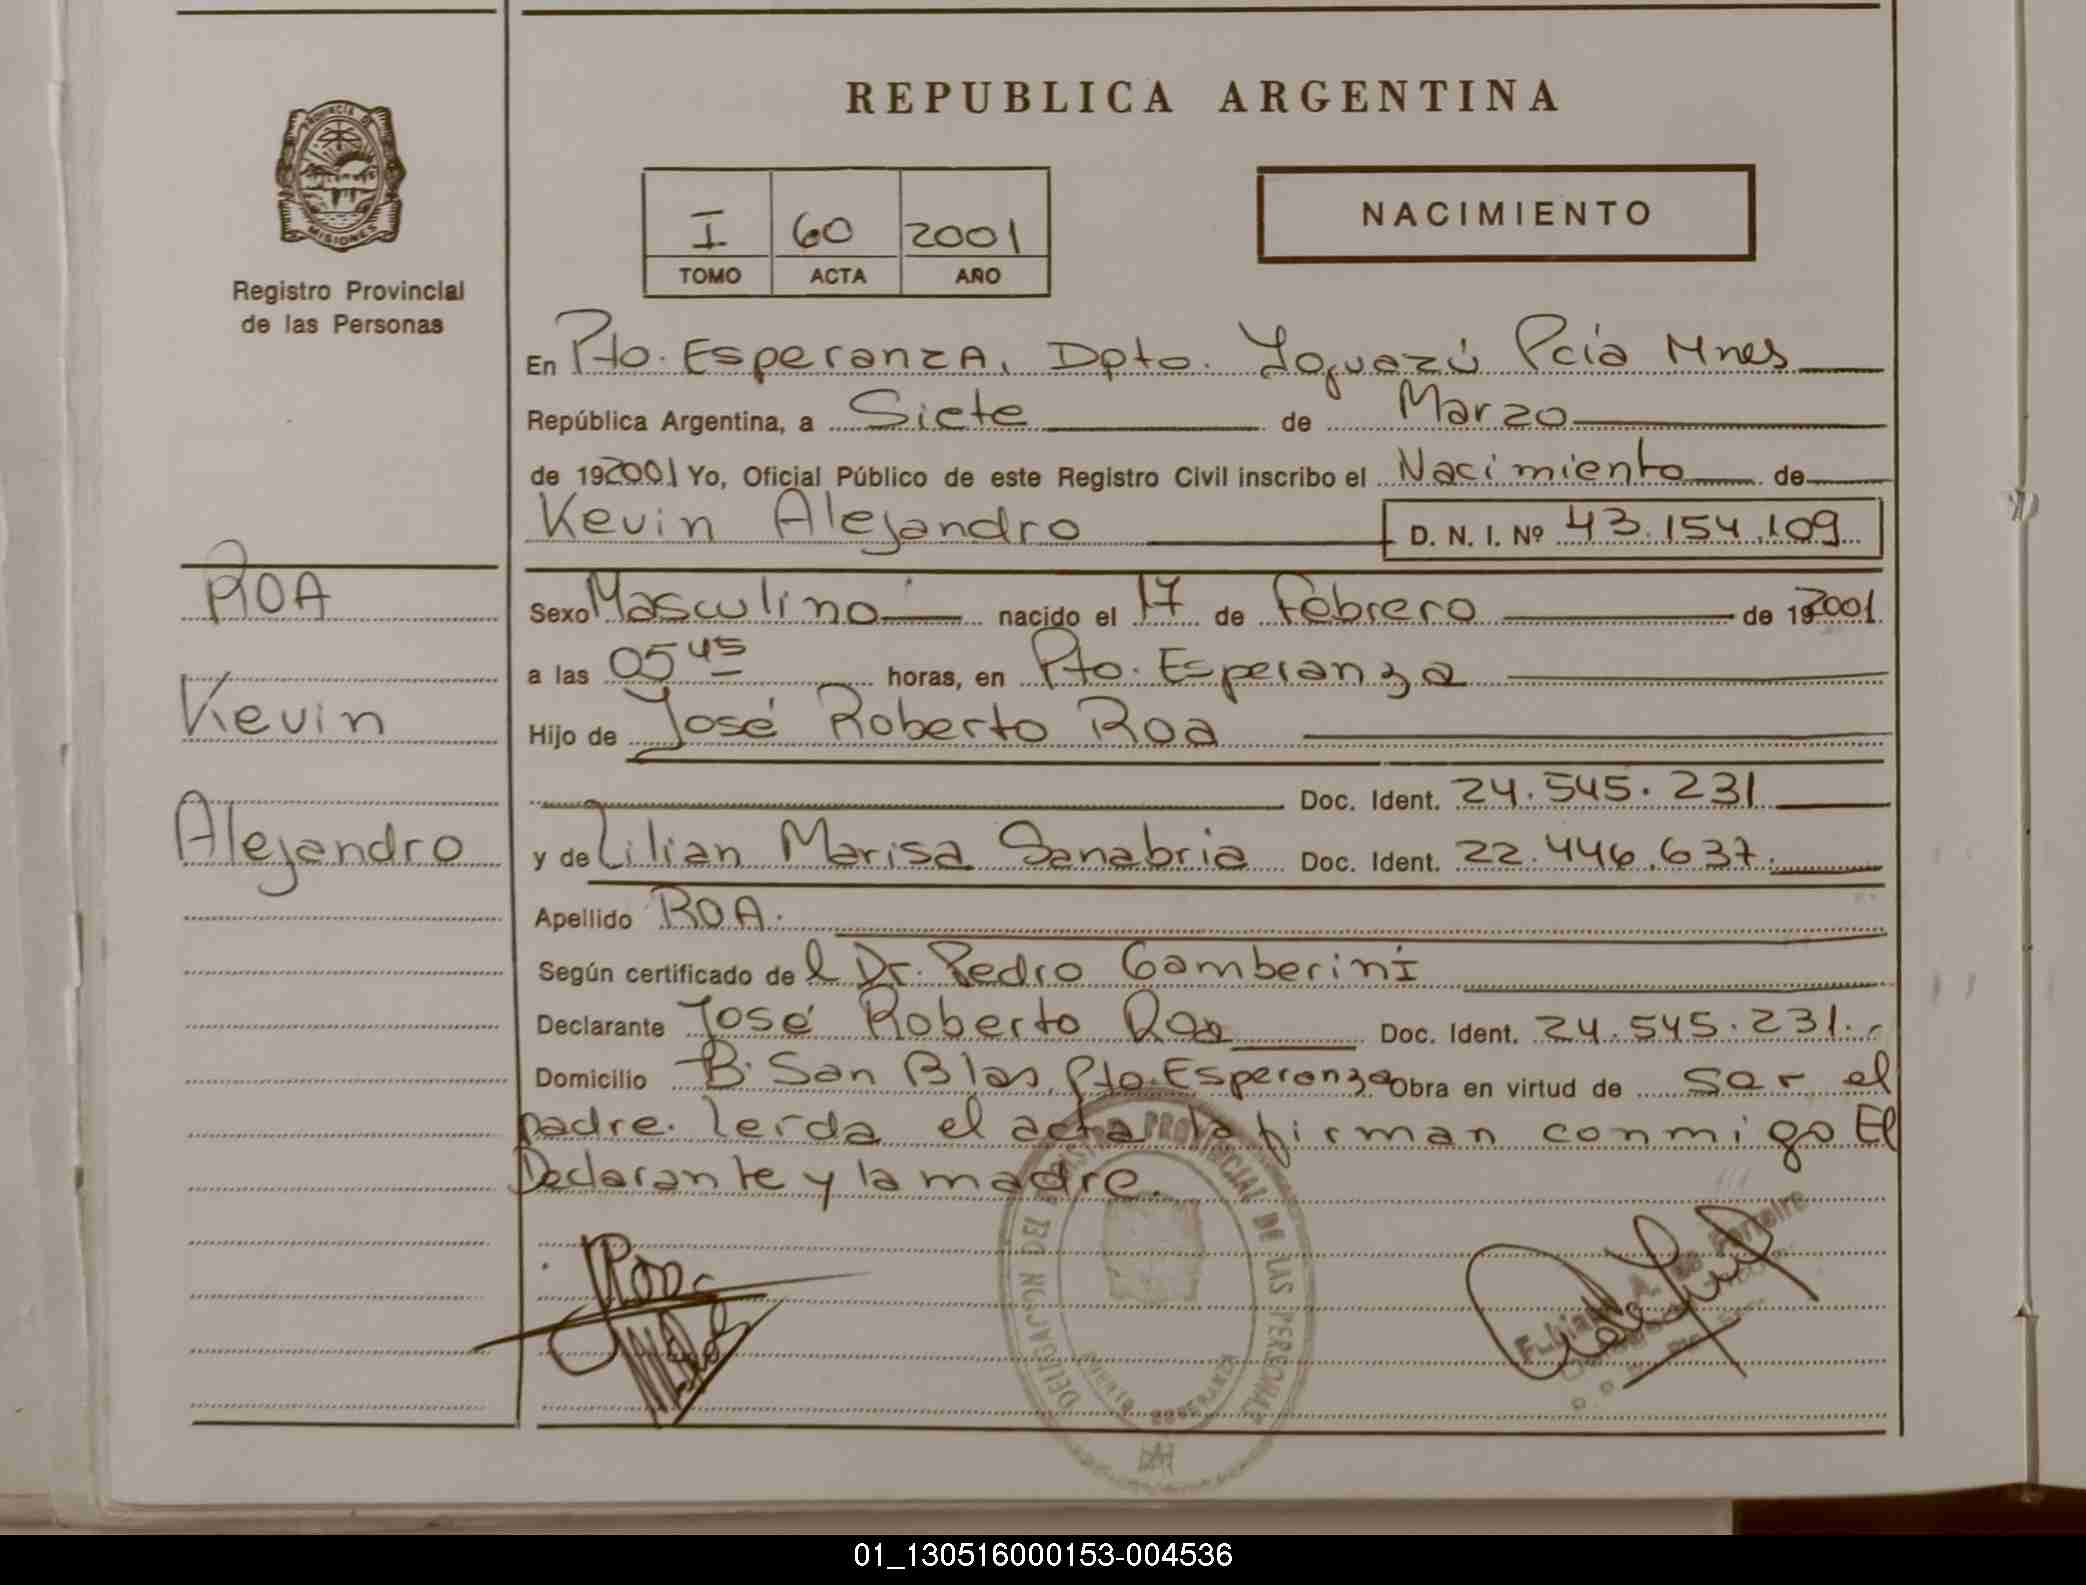 REPUBLICA ARGENTINA
PROVINCIA DE
MISIONES
Registro Provincial
de las Personas
I 60 2001
TOMO ACTA AÑO
NACIMIENTO
En Pto. Esperanza, Dpto. Iguazú Pcia Mnes
República Argentina, a Siete de Marzo
de 192001 Yo, Oficial Público de este Registro Civil inscribo el Nacimiento de
Kevin Alejandro D. N. I. Nº 43.154.109
ROA
Kevin
Alejandro
Sexo Masculino nacido el 17 de Febrero de 192001
a las 05 45 horas, en Pto. Esperanza
Hijo de José Roberto Roa
Doc. Ident. 24.545.231
y de Lilian Marisa Sanabria Doc. Ident. 22.446.637.
Apellido ROA.
Según certificado de l Dr. Pedro Gamberini
Declarante José Roberto Roa Doc. Ident. 24.545.231.
Domicilio B. San Blas, Pto. Esperanza Obra en virtud de ser el
padre. Leída el acta la firman conmigo El
Declarante y la madre.
PROVINCIAL DE LAS PERSONAS
DELEGACION
01_130516000153-004536